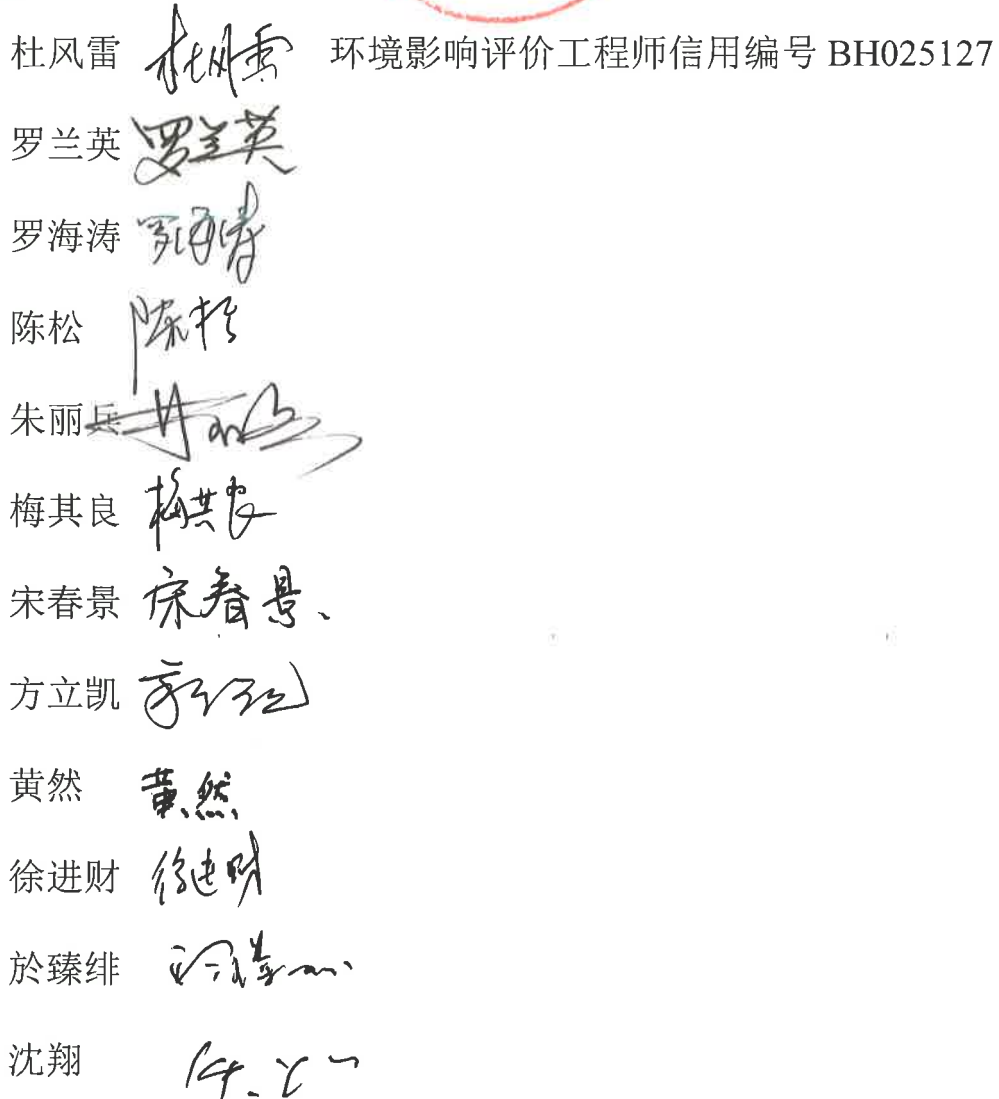 杜风雷 杜风雷 环境影响评价工程师信用编号 BH025127
罗兰英 罗兰英
罗海涛 罗海涛
陈松 陈松
朱丽兵
梅其良 梅其良
宋春景 宋春景、
方立凯
黄然 黄然
徐进财 徐进财
於臻绯
沈翔